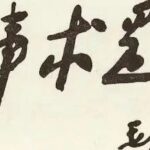 事求是
毛